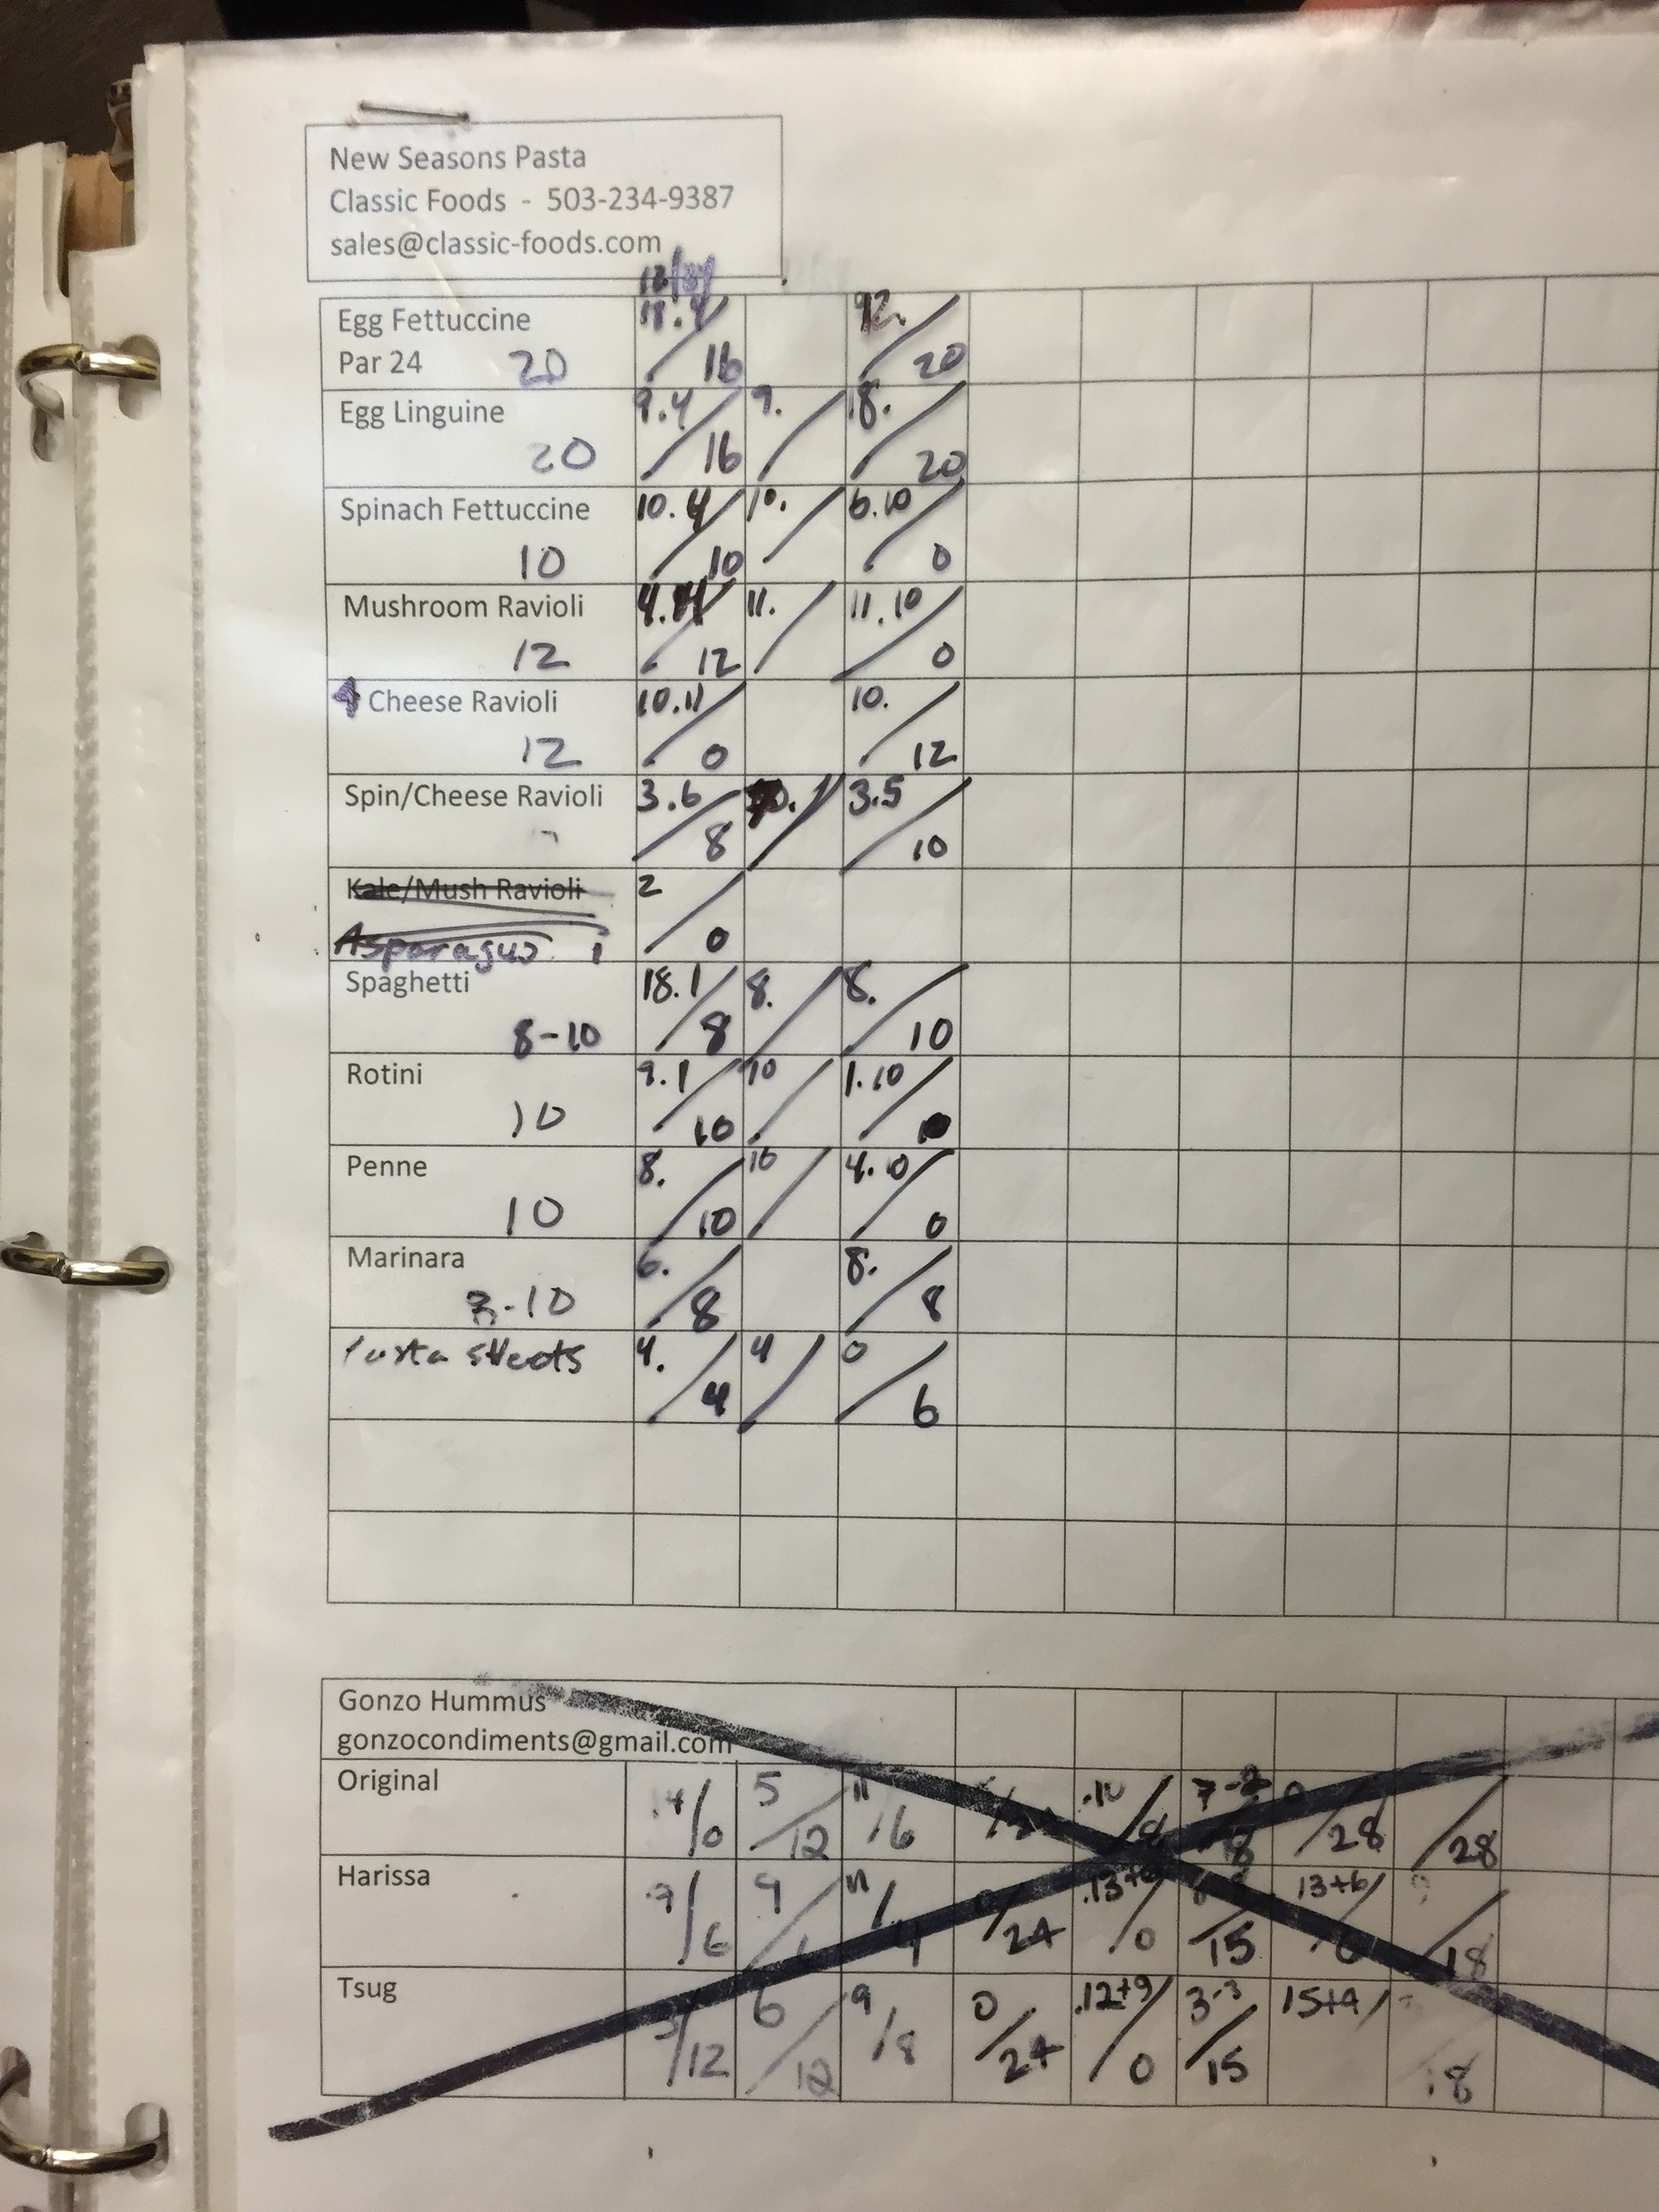 New Seasons Pasta
Classic Foods - 503-234-9387
sales@classic-foods.com
Egg Fettuccine 12.
Par 24 20 16 20
Egg Linguine 9.4 9. 18.
20 16 20
Spinach Fettuccine 10.4 10. 6.10
10 10 0
Mushroom Ravioli 11. 11.10
12 12 0
4 Cheese Ravioli 10.11 10.
12 0 12
Spin/Cheese Ravioli 3.6 3.5
8 10
Kale/Mush Ravioli 2
Asparagus 0
Spaghetti 18.1 8. 8.
8-10 8 10
Rotini 9.1 10 1.10
10 10
Penne 8. 10 4.10
10 10 0
Marinara 6. 8.
-10 8 8
Pasta sheets 4. 4 0
4 6
Gonzo Hummus
gonzocondiments@gmail.com
Original 5 11 .10
0 12 6 28 28
Harissa 9 9 11 13+6
6 4 24 0 15 18
Tsug 6 9 0 .12+9 3-3 15+4
12 12 8 24 0 15 18